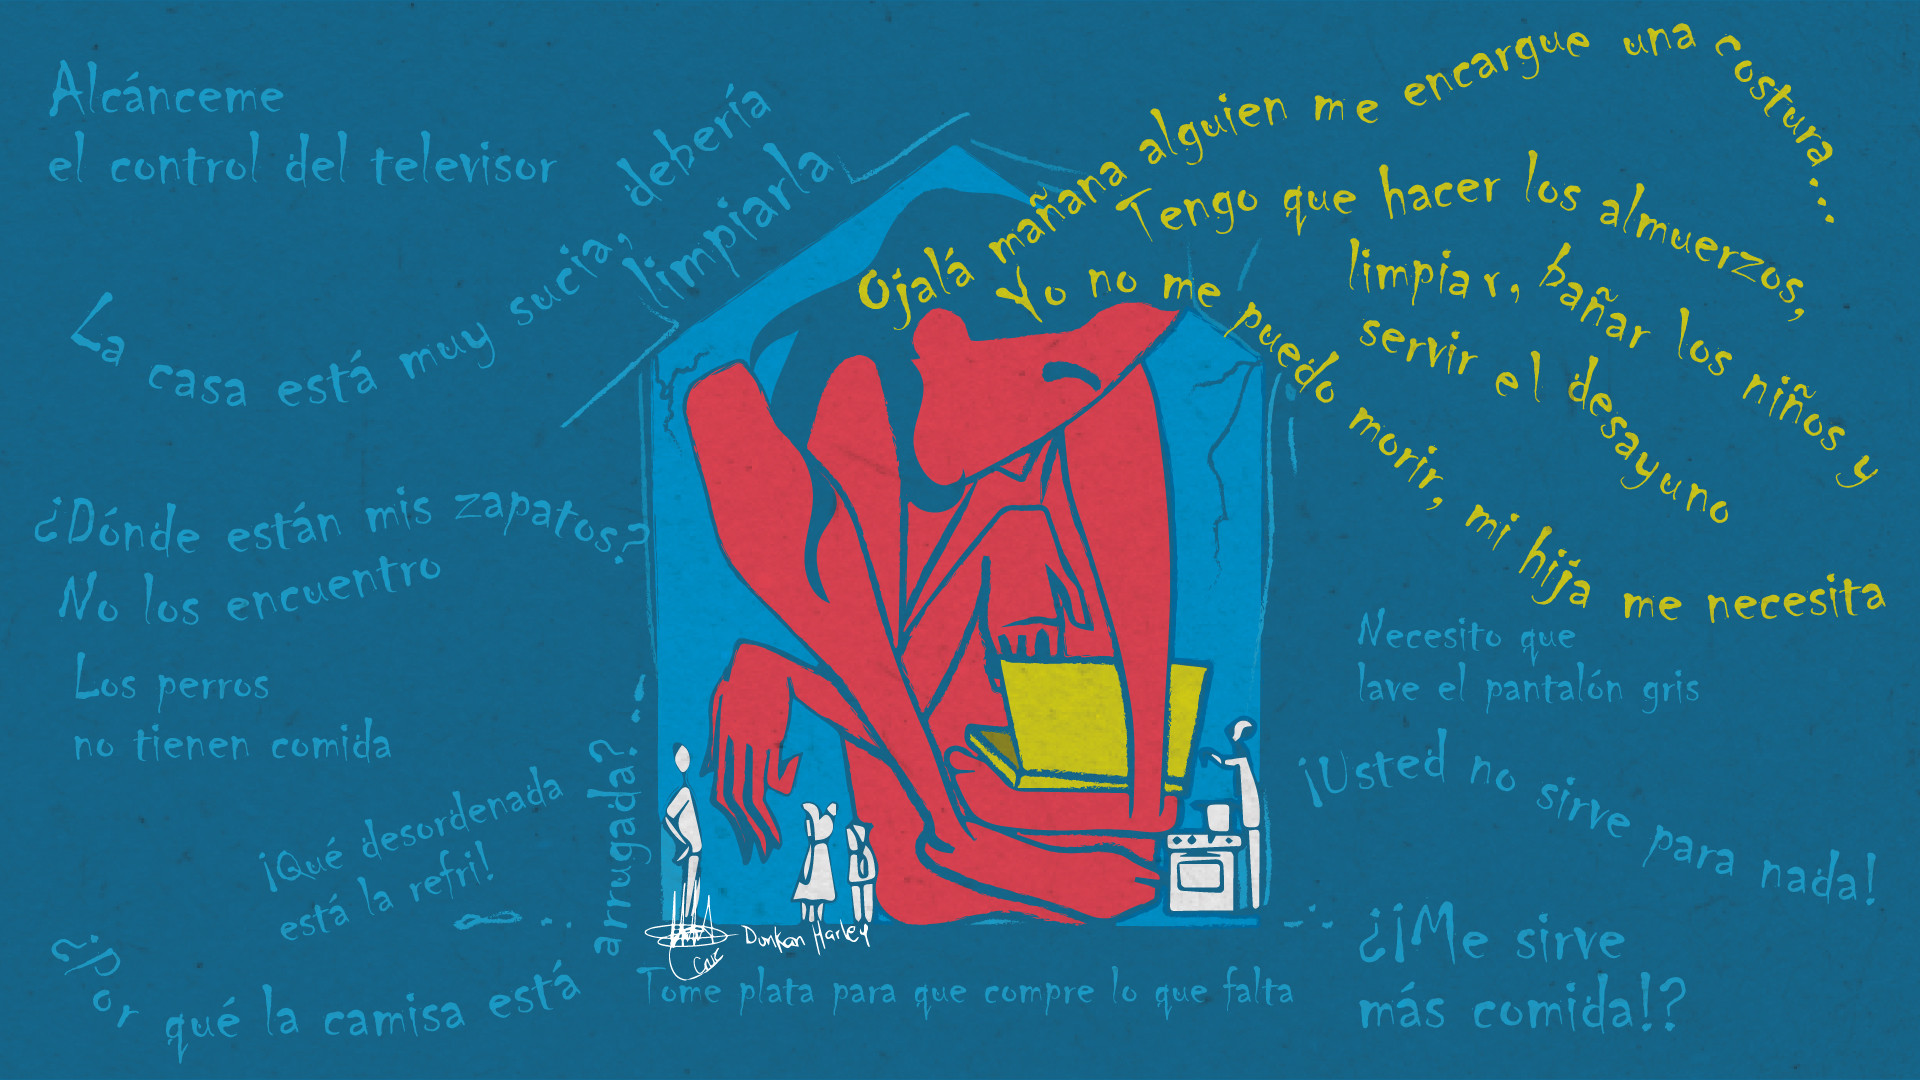 Alcánceme
el control del televisor
La casa está muy sucia, debería
limpiarla
¿Dónde están mis zapatos?
No los encuentro
Los perros
no tienen comida
¡Qué desordenada
está la refri!
¿¡Por qué la camisa está arrugada?
Ojalá mañana alguien me encargue una costura...
Tengo que hacer los almuerzos,
limpiar, bañar los niños y
servir el desayuno
Yo no me puedo morir, mi hija me necesita
Necesito que
lave el pantalón gris
¡Usted no sirve para nada!
¿¡Me sirve
más comida!?
Dunkan Harley
Cruz
Tome plata para que compre lo que falta